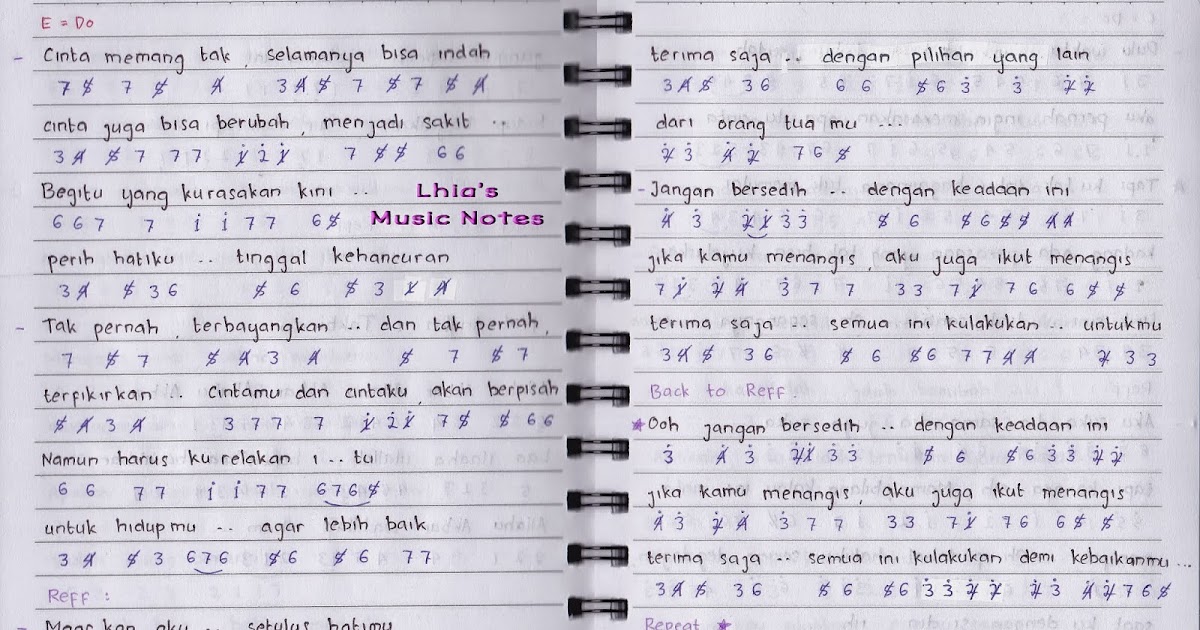 E = Do
- Cinta memang tak, selamanya bisa indah
7 5̸ 7 5̸ 4̸ 3 4̸ 5̸ 7 5̸ 7 5̸ 4̸
cinta juga bisa berubah, menjadi sakit ...
3 4̸ 5̸ 7 7 7 1̸̇ 2̇ 1̸̇ 7 5̸ 5̸ 6 6
Begitu yang kurasakan kini ...
6 6 7 7 1̇ 1̇ 7 7 6 5̸
Lhia's
Music Notes
perih hatiku ... tinggal kehancuran
3 4̸ 5̸ 3 6 5̸ 6 5̸ 3 1̸ 4̸
- Tak pernah, terbayangkan ... dan tak pernah,
7 5̸ 7 5̸ 4̸ 3 4̸ 5̸ 7 5̸ 7
terpikirkan ... Cintamu dan cintaku, akan berpisah
5̸ 4̸ 3 4̸ 3 7 7 7 1̸̇ 2̇ 1̸̇ 7 5̸ 5̸ 6 6
Namun harus ku relakan i .. tu
6 6 7 7 1̇ 1̇ 7 7 6 7 6 5̸
untuk hidupmu ... agar lebih baik
3 4̸ 5̸ 3 6 7 6 5̸ 6 5̸ 6 7 7
Reff :
Maafkan aku ... setulus hatimu
terima saja ... dengan pilihan yang lain
3 4̸ 5̸ 3 6 6 6 5̸ 6 3̇ 3̇ 2̸̇ 2̸̇
dari orang tua mu ...
2̸̇ 3̇ 4̸̇ 2̸̇ 7 6 5̸
- Jangan bersedih ... dengan keadaan ini
4̸̇ 3̇ 2̸̇ 1̸̇ 3̇ 3̇ 5̸ 6 5̸ 6 5̸ 5̸ 4̸ 4̸
jika kamu menangis, aku juga ikut menangis
7 1̸̇ 2̸̇ 4̸̇ 3̇ 7 7 3 3 7 1̸̇ 7 6 6 5̸ 5̸
terima saja ... semua ini kulakukan .. untukmu
3 4̸ 5̸ 3 6 5̸ 6 5̸ 6 7 7 4̸ 4̸ 2̸ 3 3
Back to Reff.
* Ooh jangan bersedih ... dengan keadaan ini
3̇ 4̸̇ 3̇ 2̸̇ 1̸̇ 3̇ 3̇ 5̸ 6 5̸ 6 3̇ 3̇ 2̸̇ 2̸̇
jika kamu menangis, aku juga ikut menangis
4̸̇ 3̇ 2̸̇ 4̸̇ 3̇ 7 7 3 3 7 1̸̇ 7 6 6 5̸ 5̸
terima saja ... semua ini kulakukan demi kebaikanmu ...
3 4̸ 5̸ 3 6 5̸ 6 5̸ 6 3̇ 3̇ 2̸̇ 2̸̇ 2̸̇ 3̇ 4̸̇ 2̸̇ 7 6 5̸
Repeat *